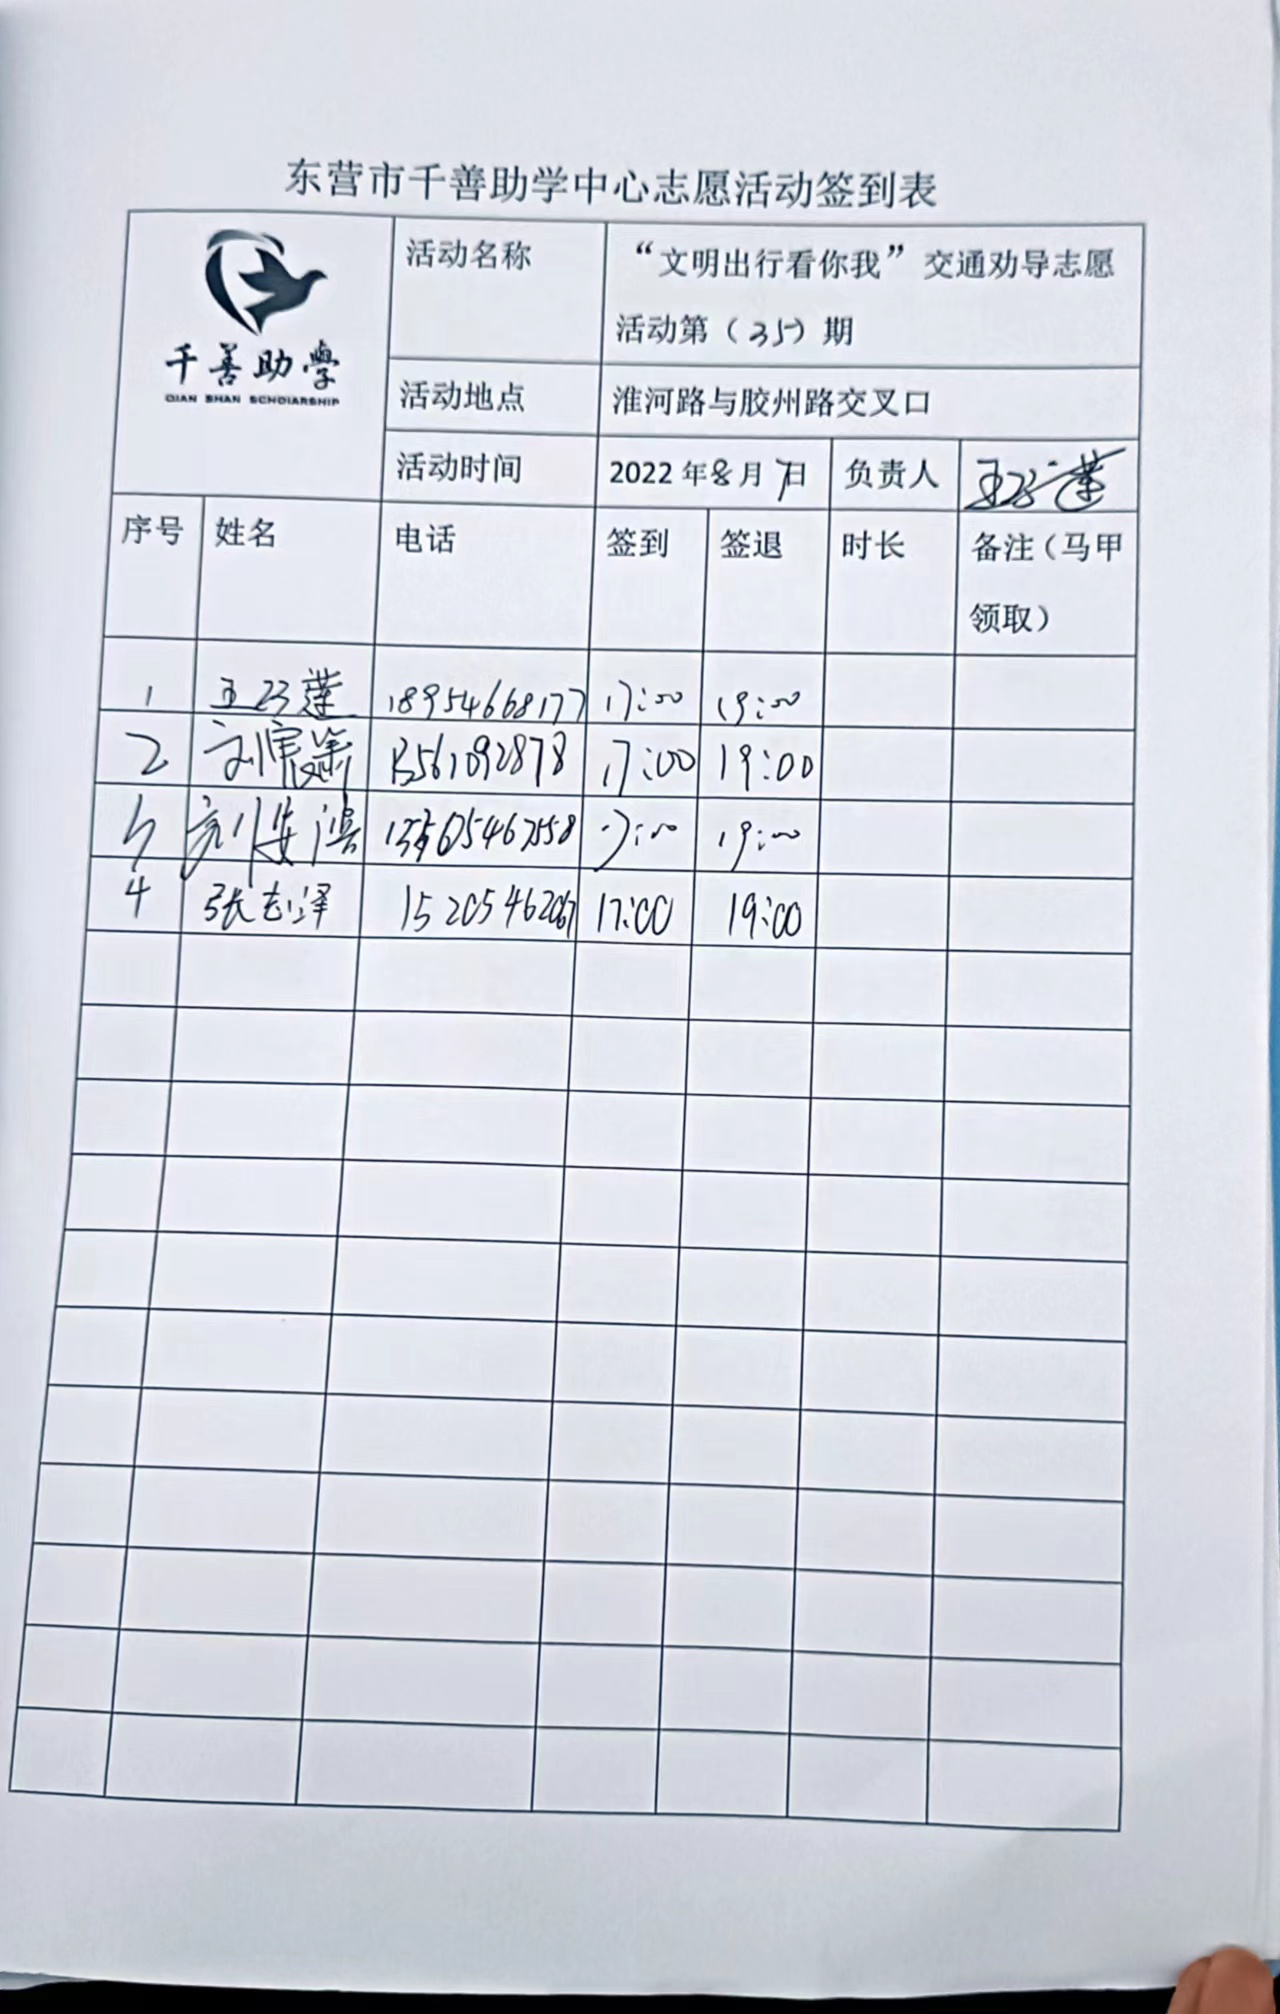 东营市千善助学中心志愿活动签到表
千善助學
QIAN SHAN SCHOIARSHIP
活动名称 “文明出行看你我”交通劝导志愿
活动第（35）期
活动地点 淮河路与胶州路交叉口
活动时间 2022年8月7日 负责人
序号 姓名 电话 签到 签退 时长 备注（马甲
领取）
1 18954668177 17:00 19:00
2 17:00 19:00
3 17:00 19:00
4 张志泽 17:00 19:00